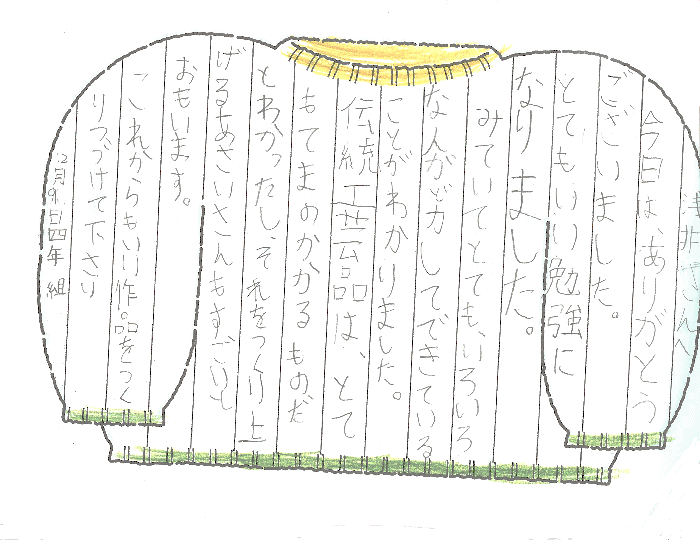 浅井さんへ
今日は、ありがとう
ございました。
とてもいい勉強に
なりました。
みていてとても、いろいろ
なんが力してできている
ことがわかりました。
伝統工芸品は、とて
もてまのかかるものだ
とわかったし、それをつくり上
げるあさいさんもすごいと
おもいます。
これからもいい作品をつく
りつづけて下さい
12月9日四年 組